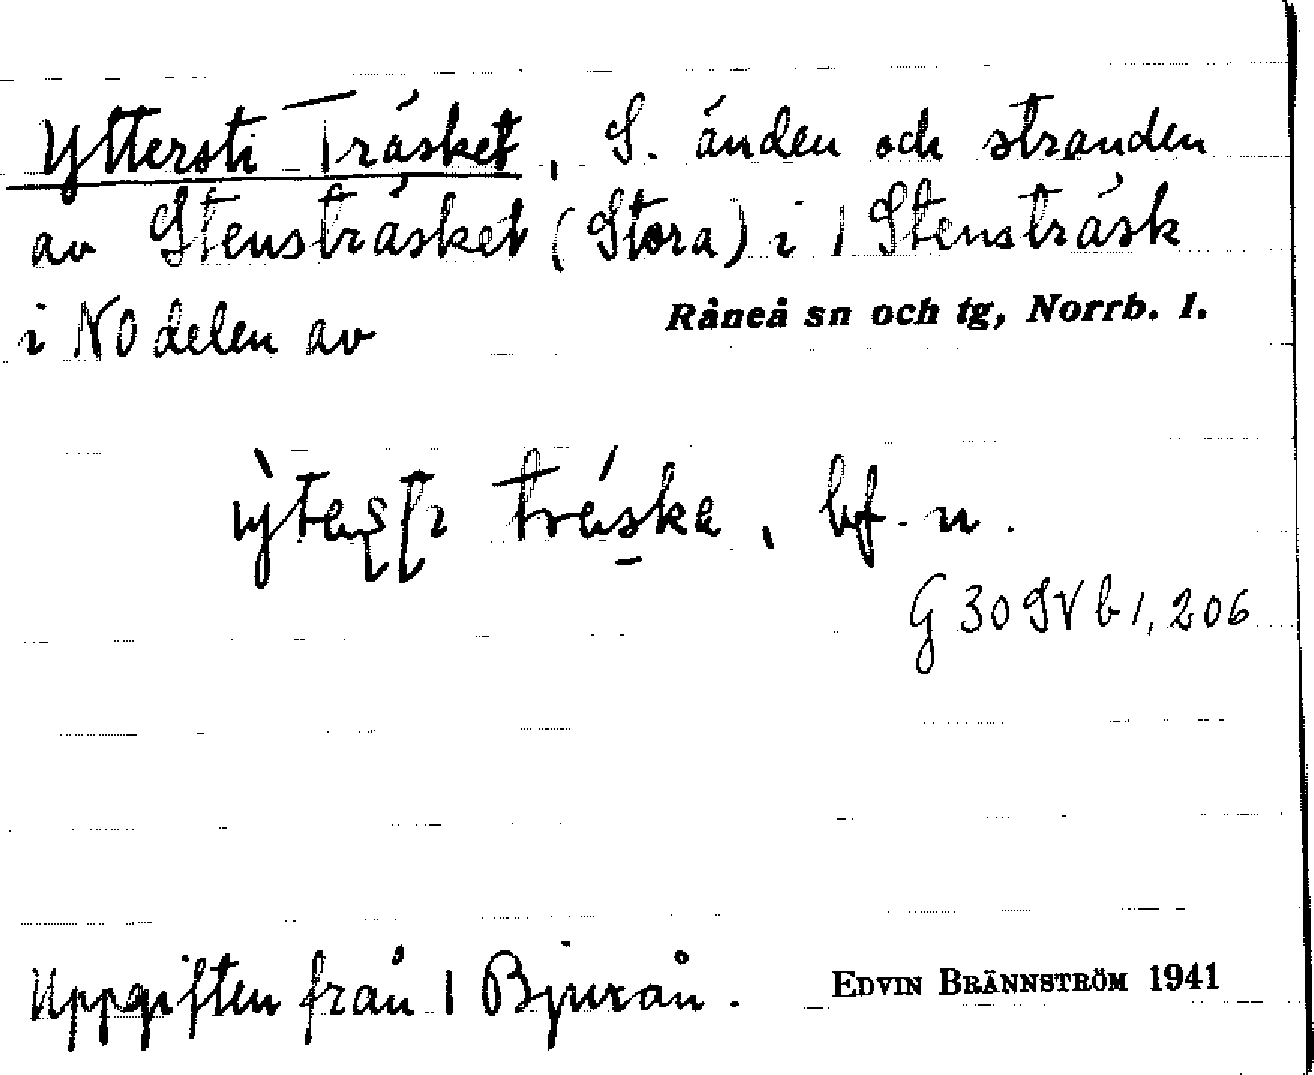 Yttersti Träsket, S. änden och stranden
av Stensträsket (Stora) i 1 Stensträsk
i NO delen av Råneå sn och tg, Norrb. l.
träska, bf. n.
G 30 SV b 1, 206
Uppgiften från 1 Bjurån. EDVIN BRÄNNSTRÖM 1941